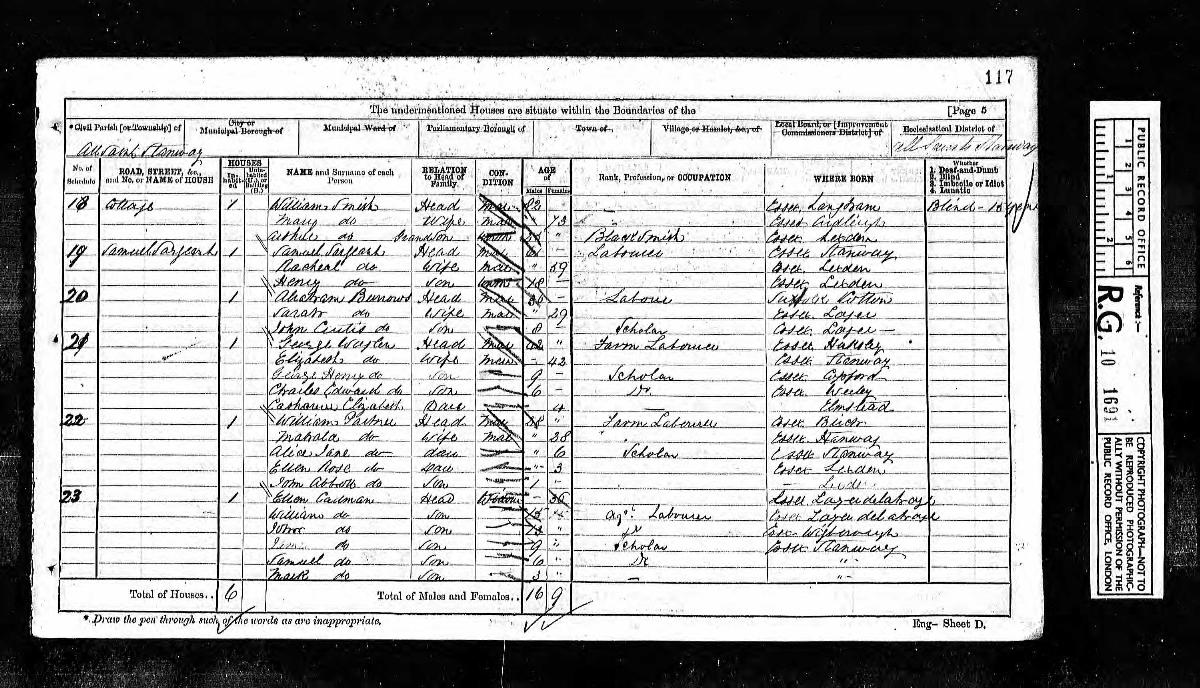 117
The undermentioned Houses are situate within the Boundaries of the [Page 5
* Civil Parish [or Township] of City or Municipal Borough of Municipal Ward of Parliamentary Borough of Town of Village or Hamlet, &c., of Local Board, or [Improvement Commissioners District] of Ecclesiastical District of
All Saints Stanway All Saints Stanway
No. of Schedule ROAD, STREET, &c., and No. or NAME of HOUSE HOUSES In-habited Uninhabited (U.), or Building (B.) NAME and Surname of each Person RELATION to Head of Family CON-DITION AGE of Males Females Rank, Profession, or OCCUPATION WHERE BORN Whether 1. Deaf-and-Dumb 2. Blind 3. Imbecile or Idiot 4. Lunatic
18 Cottage 1 William Smith Head Mar 82 - Essex Langham Blind
Mary do Wife Mar 73 Essex Ardleigh
do Grandson " Blacksmith Essex Lexden
19 Samuel Sargeant 1 Samuel Sargeant Head Mar - Labourer Essex Stanway
Racheal do Wife Mar " 59 Essex Lexden
Henry do Son 18 - Essex Lexden
20 1 Abraham Burrows Head Mar - Labour Suffolk
Sarah do Wife Mar " 29 Essex Layer
John Curtis do Son 8 - Scholar Essex Layer
21 1 George Head Mar 42 " Farm Labourer Essex
Elizabeth do Wife Mar - 42 Essex Stanway
George Henry do Son 9 - Scholar Essex Copford
Charles Edward do Son 6 - Do Essex Weeley
Elizabeth Daur 4 — Elmstead
22 1 William Head Mar " Farm Labourer Essex Birch
Mahala do Wife Mar " 28 Essex Stanway
Alice Jane do Daur " 6 Scholar Essex Stanway
Ellen Rose do Daur " 3 Essex Lexden
John Abbott do Son 1 -
23 1 Ellen Cadman Head Widow - 36 Essex Layer delahaye
William do Son 15 " Agr. Labourer Essex Layer delahaye
John do Son 13 " Do Essex Wigborough
do Son 9 " Scholar Essex Stanway
Samuel do Son 6 " Do "
Mark do Son 3 " — "
Total of Houses.. 6 Total of Males and Females.. 16 9
* Draw the pen through such of the words as are inappropriate. Eng- Sheet D.
PUBLIC RECORD OFFICE
1 2 3 4 5 6
1 2
Reference :-
R.G. 10 1691
COPYRIGHT PHOTOGRAPH—NOT TO BE REPRODUCED PHOTOGRAPHIC-ALLY WITHOUT PERMISSION OF THE PUBLIC RECORD OFFICE, LONDON